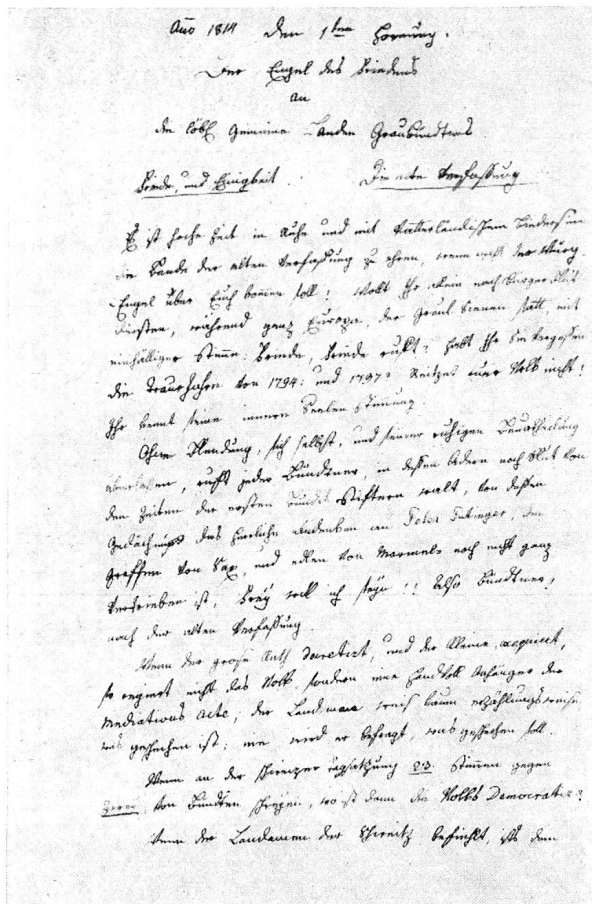 Año 1814 den 1ten Hornung.
Der Engel des Friedens
an
die löbl. Gemeine Landen Graubündtens.
Friede, und Einigkeit. Die alte Verfassung
Es ist hoche Zeit in Ruhe und mit Vatterländischem Biedersinn
die Bande der alten Verfaßung zu ehren, wenn nicht der Würg-
Engel über Euch kommen soll! Wollt Ihr allein nach Bürger Blut
dürsten, während ganz Europa, der Greul Scenen satt, mit
einhälliger Stimme: Friede, Friede ruft? Habt Ihr Sie vergessen
die Trauerjahre von 1794: und 1797? Reitzet euer Volk nicht!
Ihr kennt seine innere Seelen Stimung.
Ohne Blendung, sich selbst, und seiner ruhigen Beurtheilung
überlassen, ruft jeder Bündtner, in deßen Adern noch Blut von
den Zeiten der ersten Bundes Stiftern wallt, von deßen
Gedächtnuß das herrliche Andenken an Peter Putinger, den
Graffen von Sax, und edlen von Marmels noch nicht ganz
vertrieben ist, Frey will ich seyn!! Also Bündtner,
nach der alten Verfaßung.
Wenn der große Rath decretirt, und der Kleine, exequiert,
so regiert nicht das Volk, sondern eine Handvoll Anhänger der
Mediations Acte; der Landmann weiß kaum erzählungsweise,
was geschechen ist; nie wird er befragt, was geschechen soll.
Wenn an der schweizer Tagsatzung 23. Stimen gegen
zwey von Bündten schreyen, wo ist dann die Volks Democratie?
Wenn der Landamen der Schweitz befiehlt, ists dem